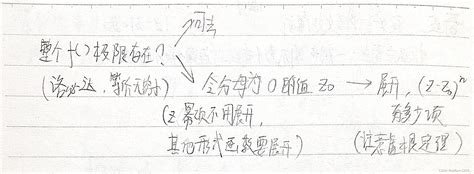 可去
整个f()极限存在?
(洛必达,等价无穷小)
令分母为0的值 z₀ → 展开,(z-z₀)ⁿ
(z 幂次不用展开,
有多少项
其他形式函数要展开)
(注意虚根定理)